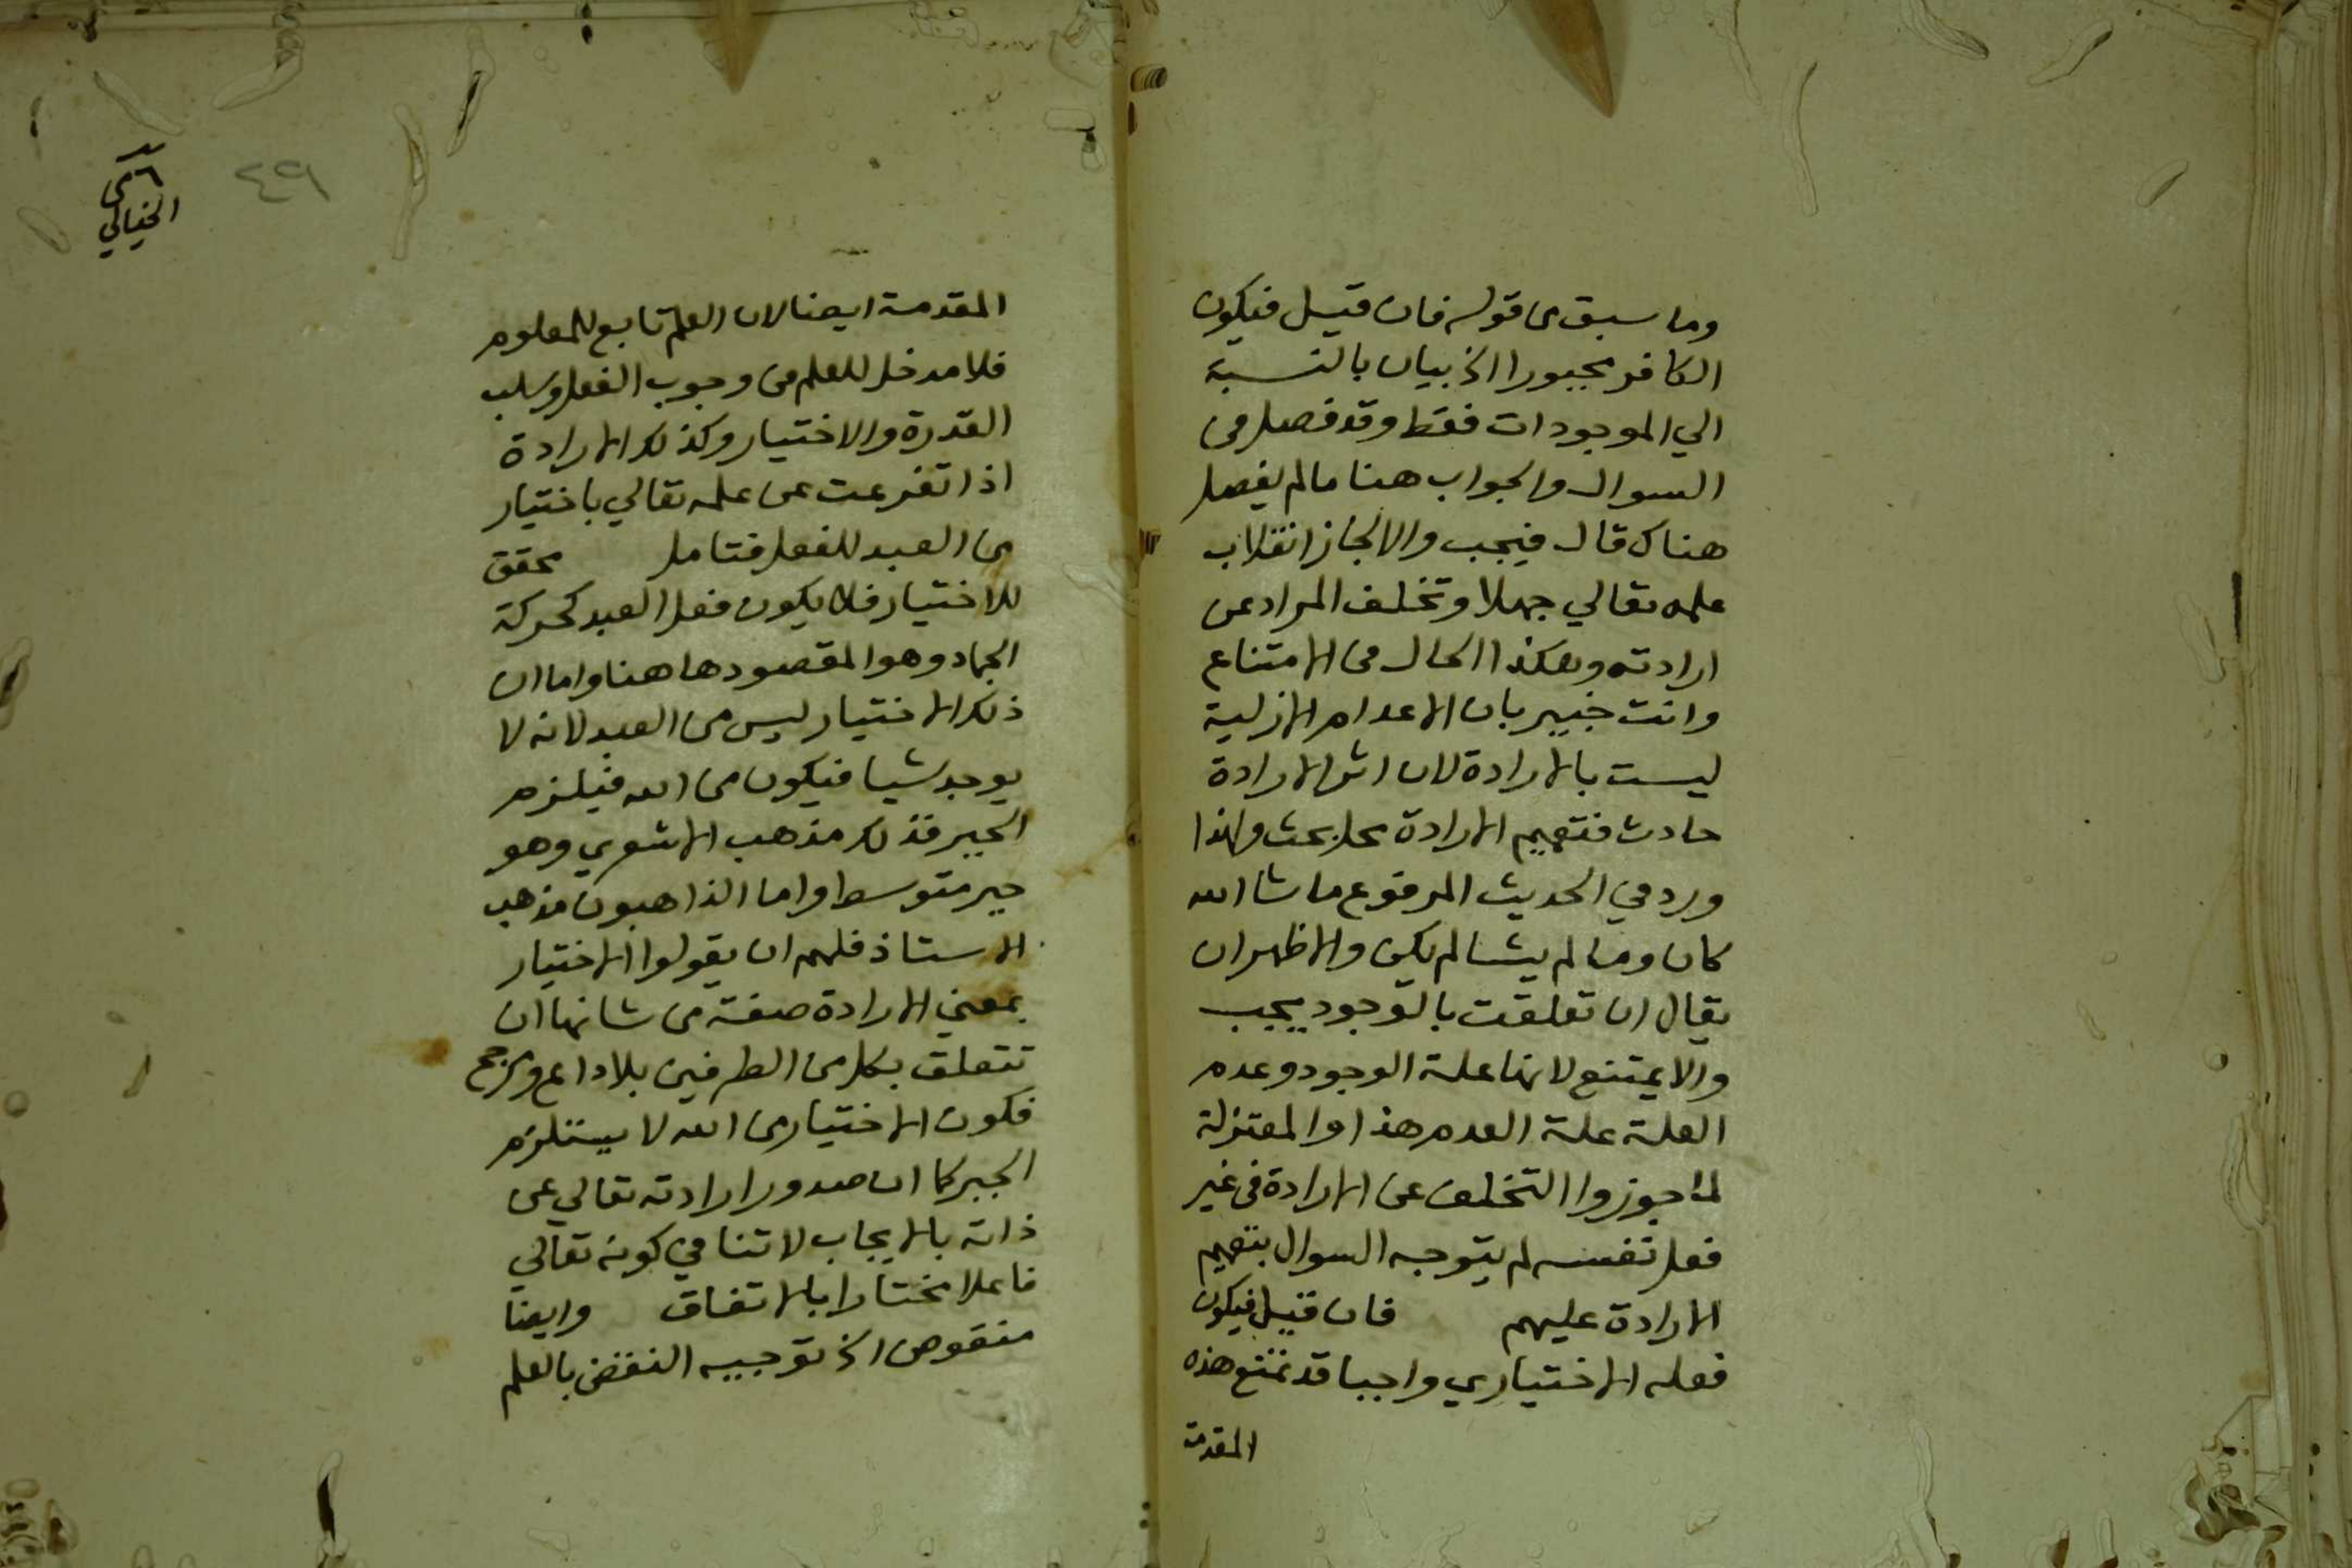 وما سبق من قوله فان قيل فيكون
الكافر مجبورا الخ بيان بالنسبة
الي الموجودات فقط وقد فصل في
السوال والجواب هنا مالم يفصل
هناك قال فيجب والا لجاز انقلاب
علمه تعالي جهلا وتخلف المراد عن
ارادته وهكذا الحال في الامتناع
وانت خبير بان الاعدام الازلية
ليست بالارادة لان اثر الارادة
حادث فتعميم الارادة محل بحث ولهذا
ورد في الحديث المرفوع ما شا الله
كان وما لم يشا لم يكن والاظهر ان
يقال ان تعلقت بالوجود يجب
والا يمتنع لانها علة الوجود وعدم
العلة علة العدم هذا والمعتزلة
لما جوزوا التخلف عن الارادة في غير
فعل نفسه لم يتوجه السوال بتعميم
الارادة عليهم فان قيل فيكون
فعله الاختياري واجبا قد تمنع هذه
المقدمة
٤٩
الخيالي
المقدمة ايضا لان العلم تابع للمعلوم
فلا مدخل للعلم في وجوب الفعل وسلب
القدرة والاختيار وكذلك الارادة
اذا تفرعت عن علمه تعالي باختيار
من العبد للفعل فتامل محقق
للاختيار فلا يكون فعل العبد كحركة
الجماد وهو المقصود هاهنا واما ان
ذلك الاختيار ليس من العبد لانه لا
يوجد شيا فيكون من الله فيلزم
الجبر فذلك مذهب الاشعري وهو
جبر متوسط واما الذاهبون مذهب
الاستاذ فلهم ان يقولوا الاختيار
بمعني الارادة صفة من شانها ان
تتعلق بكل من الطرفين بلا داع ومرجح
فكون الاختيار من الله لا يستلزم
الجبر كما ان صدور ارادته تعالي عن
ذاته بالايجاب لا تنافي كونه تعالي
فاعلا مختارا بالاتفاق وايضا
منقوض الخ توجيه النقض بالعلم